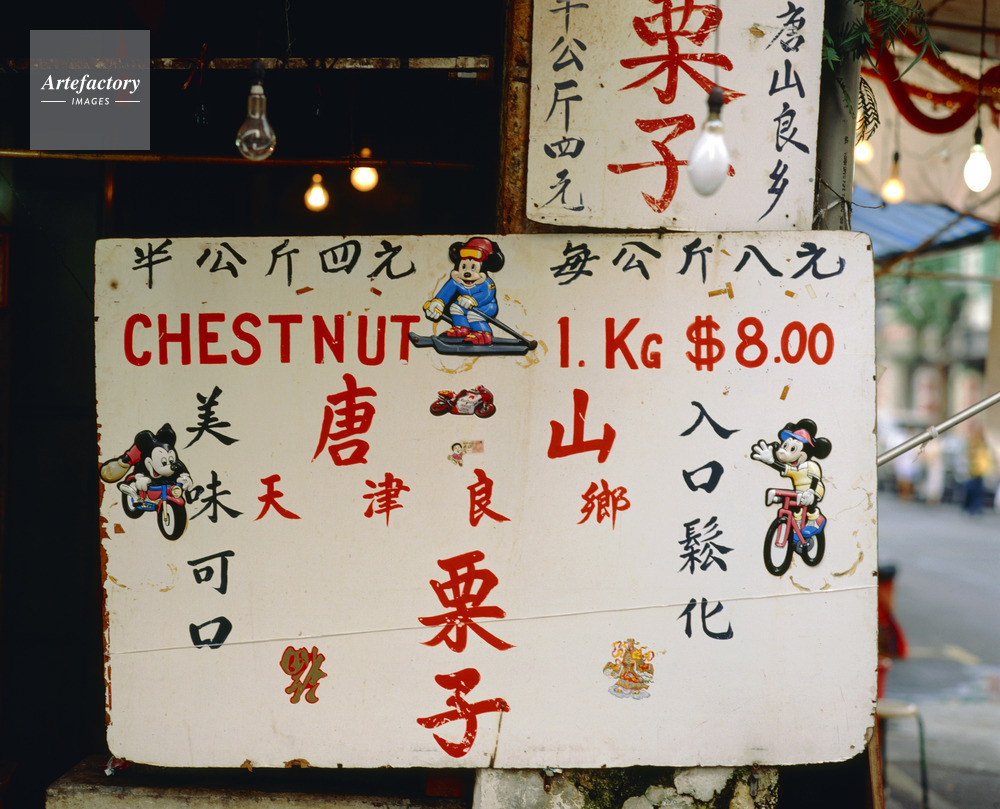 Artefactory
IMAGES
半公斤四元
栗子
唐山良乡
半公斤四元
每公斤八元
CHESTNUT
1. KG $8.00
美味可口
唐山
入口鬆化
天津良鄉
栗子
福